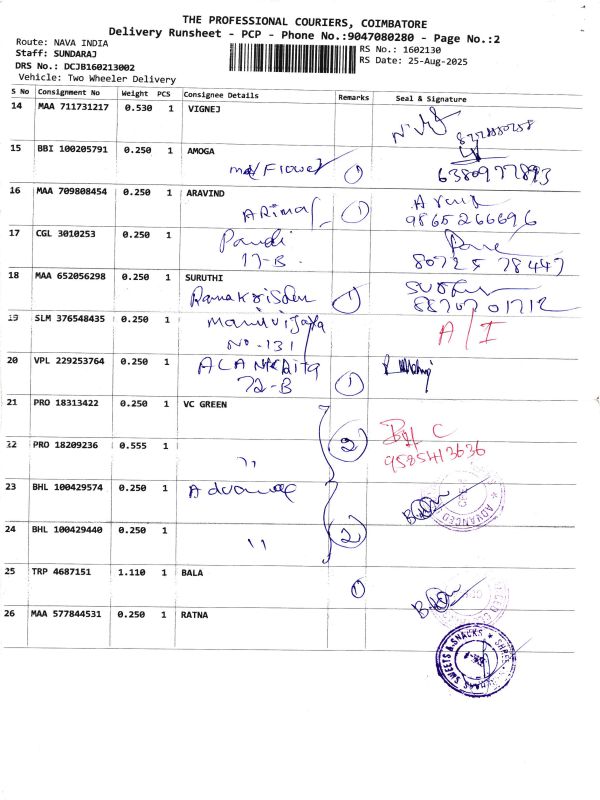 THE PROFESSIONAL COURIERS, COIMBATORE
Delivery Runsheet - PCP - Phone No.:9047080280 - Page No.:2
Route: NAVA INDIA
Staff: SUNDARAJ
DRS No.: DCJB160213002
Vehicle: Two Wheeler Delivery
RS No.: 1602130
RS Date: 25-Aug-2025
S No Consignment No Weight PCS Consignee Details Remarks Seal & Signature
14 MAA 711731217 0.530 1 VIGNEJ
15 BBI 100205791 0.250 1 AMOGA
Flower 1 6380977893
16 MAA 709808454 0.250 1 ARAVIND
1 9865266696
17 CGL 3010253 0.250 1 Pandi
17-B. 80725 78447
18 MAA 652056298 0.250 1 SURUTHI
1 88707 01712
19 SLM 376548435 0.250 1 A/I
No-131
20 VPL 229253764 0.250 1
72-B 1
21 PRO 18313422 0.250 1 VC GREEN
22 PRO 18209236 0.555 1 " 2 9585413636
23 BHL 100429574 0.250 1 Advance
24 BHL 100429440 0.250 1 " 2
ADVANCED
25 TRP 4687151 1.110 1 BALA 1
26 MAA 577844531 0.250 1 RATNA
SWEETS & SNACKS * SHREE